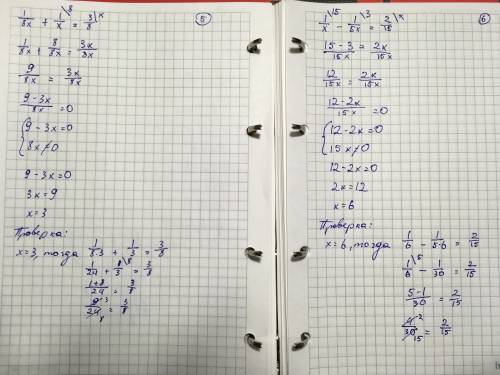 5
1/8x + 1/x \8 = 3/8 \x
1/8x + 8/8x = 3x/8x
9/8x = 3x/8x
9-3x/8x = 0
{9-3x=0
{8x≠0
9-3x=0
3x=9
x=3
Проверка:
x=3, тогда 1/8·3 + 1/3 = 3/8
1/24 + 8/3 \8 = 3/8
1+8/24 = 3/8
9/24 3/8 = 3/8
6
1/x \15 - 1/5x \3 = 2/15 \x
15-3/15x = 2x/15x
12/15x = 2x/15x
12-2x/15x = 0
{12-2x=0
{15x≠0
12-2x=0
2x=12
x=6
Проверка:
x=6, тогда 1/6 - 1/5·6 = 2/15
1/6 \5 - 1/30 = 2/15
5-1/30 = 2/15
4/30 2/15 = 2/15